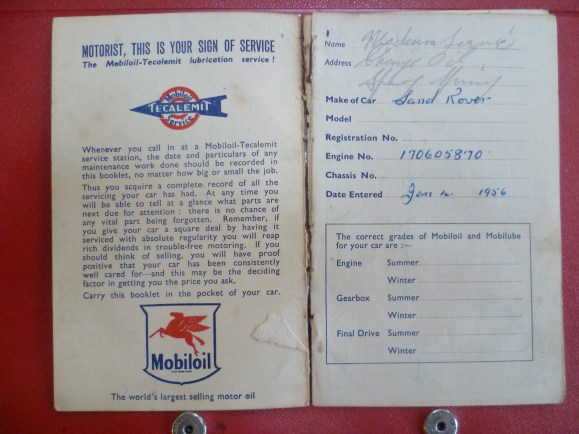 MOTORIST, THIS IS YOUR SIGN OF SERVICE
The Mobiloil-Tecalemit lubrication service!
Mobiloil
TECALEMIT
Service
Whenever you call in at a Mobiloil-Tecalemit
service station, the date and particulars of any
maintenance work done should be recorded in
this booklet, no matter how big or small the job.
Thus you acquire a complete record of all the
servicing your car has had. At any time you
will be able to tell at a glance what parts are
next due for attention: there is no chance of
any vital part being forgotten. Remember, if
you give your car a square deal by having it
serviced with absolute regularity you will reap
rich dividends in trouble-free motoring. If you
should think of selling, you will have proof
positive that your car has been consistently
well cared for—and this may be the deciding
factor in getting you the price you ask.
Carry this booklet in the pocket of your car.
Mobiloil
The world's largest selling motor oil
Name
Address
Make of Car Land Rover
Model
Registration No.
Engine No. 170605870
Chassis No.
Date Entered 1956
The correct grades of Mobiloil and Mobilube
for your car are :—
Engine Summer
Winter
Gearbox Summer
Winter
Final Drive Summer
Winter